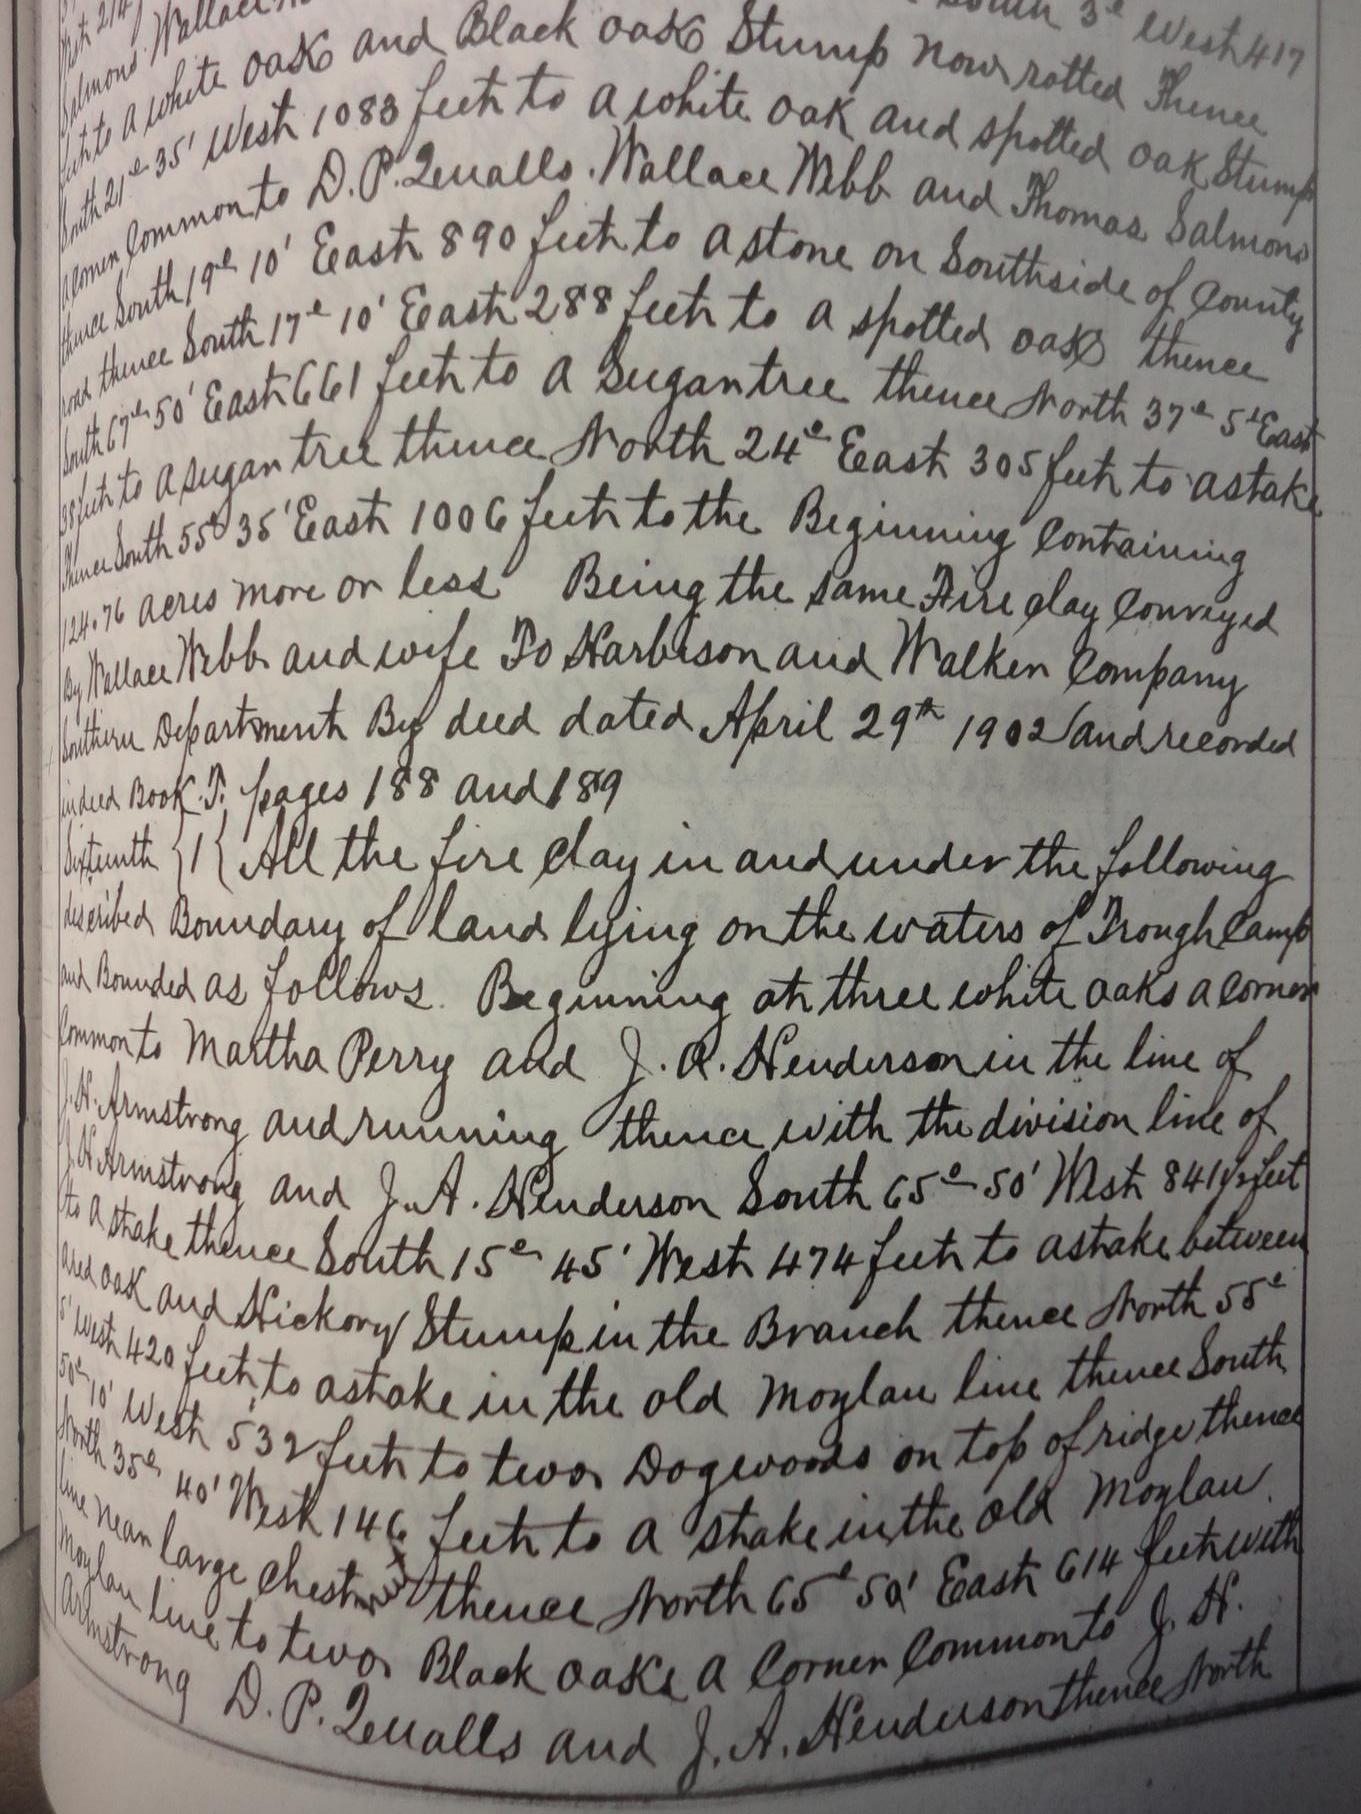 South 3° West 417
Salmons Wallace
feet to a white oak and Black oak Stump now rotted Thence
South 21° 35' West 1083 feet to a white oak and spotted oak Stump
a corner Common to D. P. Qualls. Wallace Webb and Thomas Salmons
thence South 19° 10' East 890 feet to a stone on Southside of County
road thence South 17° 10' East 288 feet to a spotted oak thence
South 67° 50' East 661 feet to a Sugar tree thence North 37° 5' East
38 feet to a sugar tree thence North 24° East 305 feet to a stake
Thence South 55° 35' East 1006 feet to the Beginning Containing
124.76 acres more or less Being the same Fire clay Conveyed
By Wallace Webb and wife To Harbison and Walker Company
Southern Department By deed dated April 29th 1902 and recorded
in deed Book T. pages 188 and 189
Sixteenth {1{ All the fire clay in and under the following
described Boundary of land lying on the waters of Trough Camp
and Bounded as follows. Beginning at three white oaks a corner
Common to Martha Perry and J. A. Henderson in the line of
J. H. Armstrong and running thence with the division line of
J. H. Armstrong and J. A. Henderson South 65° 50' West 841½ feet
to a stake thence South 15° 45' West 474 feet to a stake between
a red oak and Hickory Stump in the Branch thence North 55°
5' West 420 feet to a stake in the old Moylan line thence South
50° 10' West 532 feet to two Dogwoods on top of ridge thence
North 35° 40' West 146 feet to a stake in the old Moylan
line near large chestnut thence North 65° 50' East 614 feet with
Moylan line to two Black oaks a Corner Common to J. H.
Armstrong D. P. Qualls and J. A. Henderson thence North